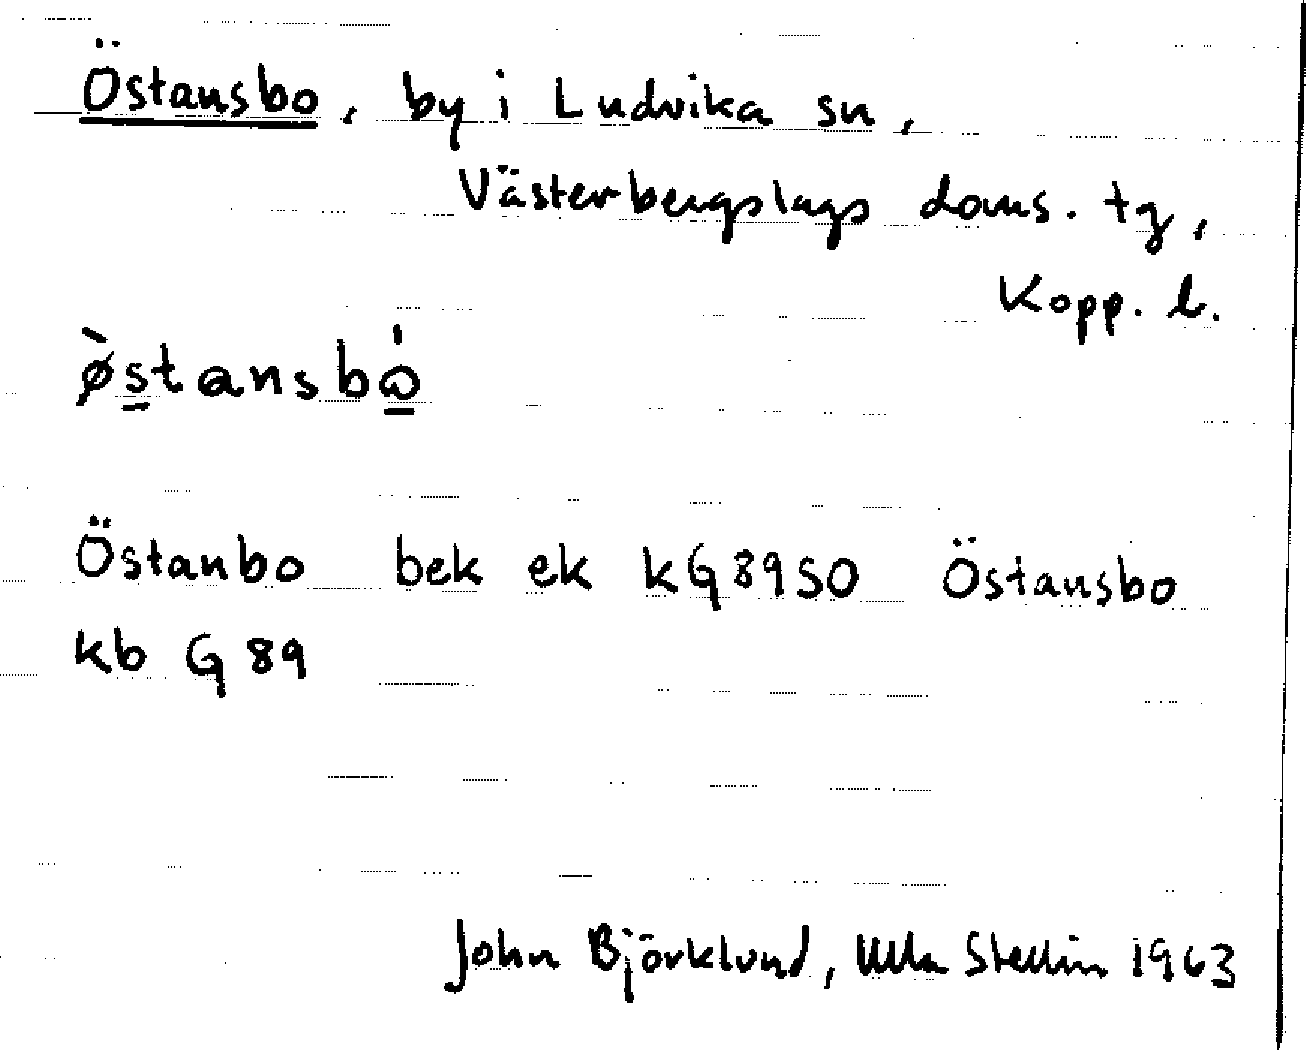 Östansbo, by i Ludvika sn,
Västerbergslags doms. tg,
Kopp. l.
ø̀stansbò̱
Östanbo bek ek kG89SO Östansbo
kb G 89
John Björklund, Ulla Stellin 1963